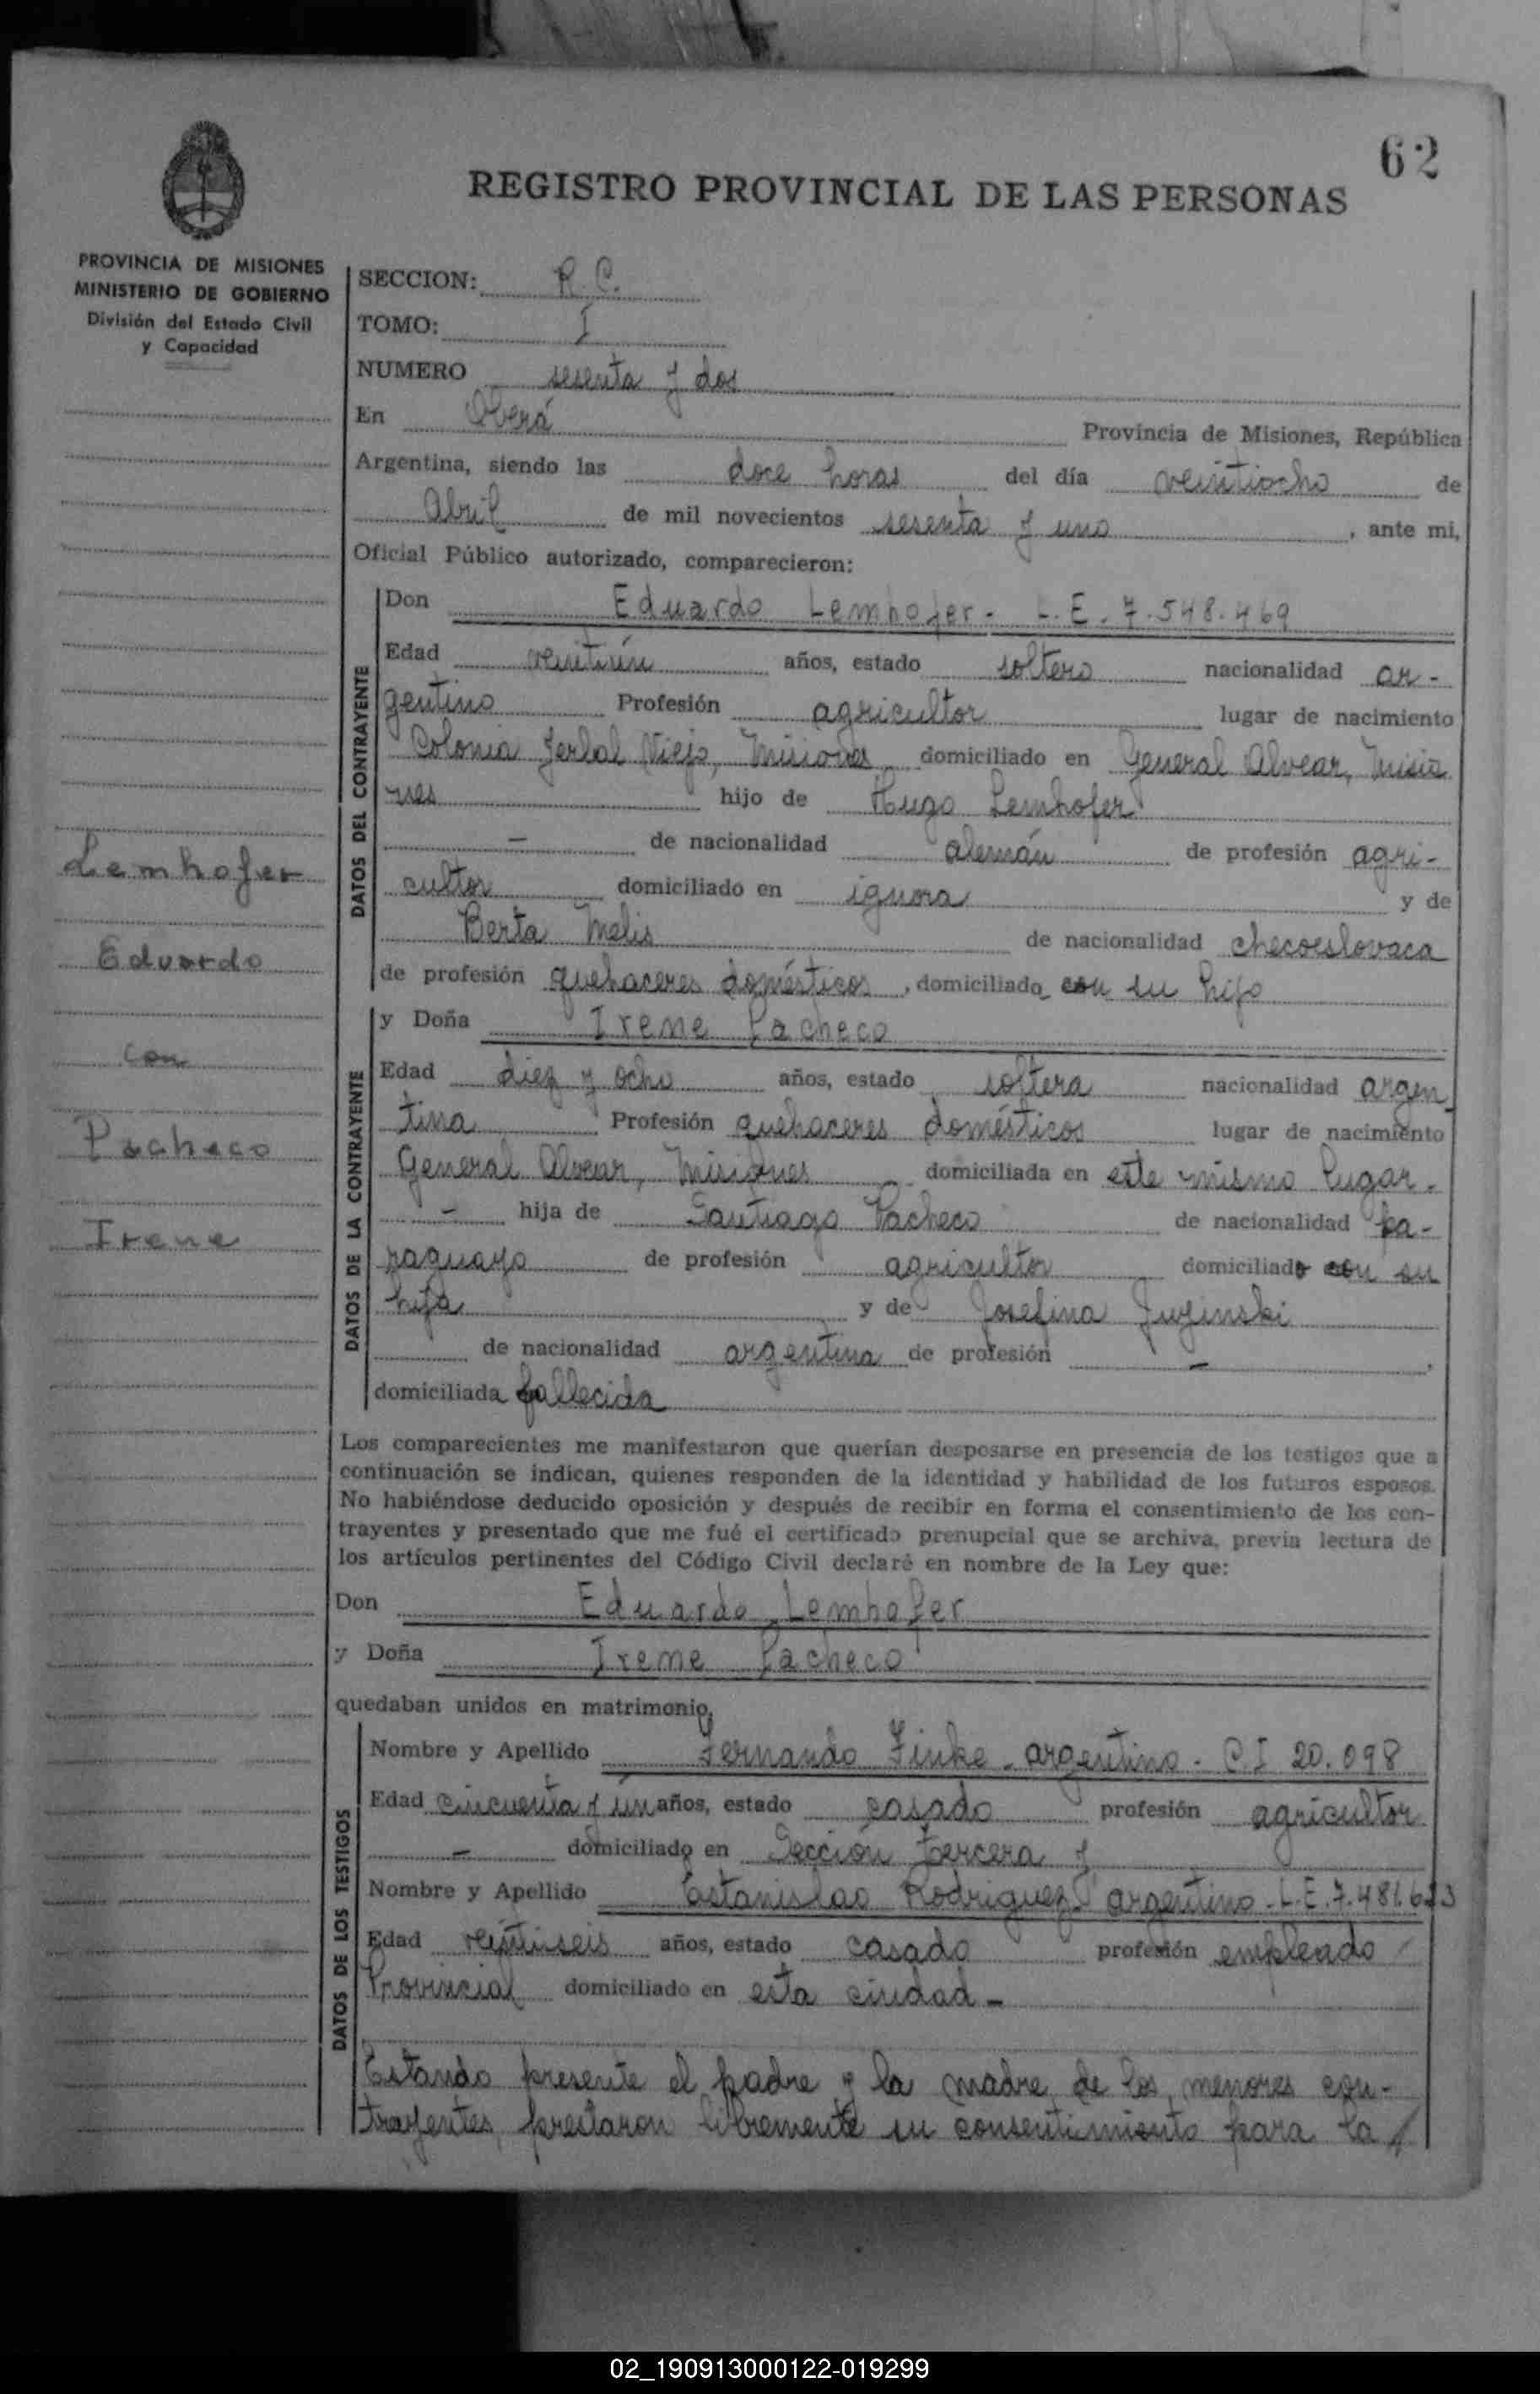 62
REGISTRO PROVINCIAL DE LAS PERSONAS
PROVINCIA DE MISIONES
MINISTERIO DE GOBIERNO
División del Estado Civil
y Capacidad
SECCION: R. C.
TOMO: I
NUMERO sesenta y dos
En Oberá Provincia de Misiones, República
Argentina, siendo las doce horas del día veintiocho de
Abril de mil novecientos sesenta y uno, ante mi,
Oficial Público autorizado, comparecieron:
DATOS DEL CONTRAYENTE
Don Eduardo Lemhofer - L.E. 7.548.469
Edad veintiún años, estado soltero nacionalidad ar-
gentino Profesión agricultor lugar de nacimiento
Colonia Yerbal Viejo, Misiones domiciliado en General Alvear, Misio
nes hijo de Hugo Lemhofer
- de nacionalidad alemán de profesión agri-
cultor domiciliado en ignora y de
Berta Melis de nacionalidad checoeslovaca
de profesión quehaceres domésticos, domiciliado con su hijo
Lemhofer
Eduardo
con
Pacheco
Irene
DATOS DE LA CONTRAYENTE
y Doña Irene Pacheco
Edad diez y ocho años, estado soltera nacionalidad argen
tina Profesión quehaceres domésticos lugar de nacimiento
General Alvear, Misiones domiciliada en este mismo lugar.
- hija de Santiago Pacheco de nacionalidad pa-
raguayo de profesión agricultor domiciliado con su
hija y de Josefina
de nacionalidad argentina de profesión -,
domiciliada fallecida
Los comparecientes me manifestaron que querían desposarse en presencia de los testigos que a
continuación se indican, quienes responden de la identidad y habilidad de los futuros esposos.
No habiéndose deducido oposición y después de recibir en forma el consentimiento de los con-
trayentes y presentado que me fué el certificado prenupcial que se archiva, previa lectura de
los artículos pertinentes del Código Civil declaré en nombre de la Ley que:
Don Eduardo Lemhofer
y Doña Irene Pacheco
quedaban unidos en matrimonio.
DATOS DE LOS TESTIGOS
Nombre y Apellido Fernando Finke - argentino - C.I 20.098
Edad cincuenta y un años, estado casado profesión agricultor
- domiciliado en Sección Tercera y
Nombre y Apellido Estanislao Rodriguez argentino - L.E.
Edad veintiseis años, estado casado profesión empleado
Provincial domiciliado en esta ciudad -
Estando presente el padre y la madre de los menores con-
trayentes, prestaron libremente su consentimiento para la
02_190913000122-019299